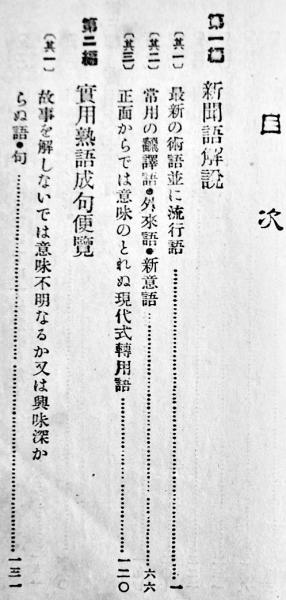 目次
第一編 新聞語解説
〔其一〕 最新の術語並に流行語……一
〔其二〕 常用の飜譯語●外來語●新意語……六六
〔其三〕 正面からでは意味のとれぬ現代式轉用語……一二〇
第二編 實用熟語成句便覽
〔其一〕 故事を解しないでは意味不明なるか又は興味深か
らぬ語●句……一三一